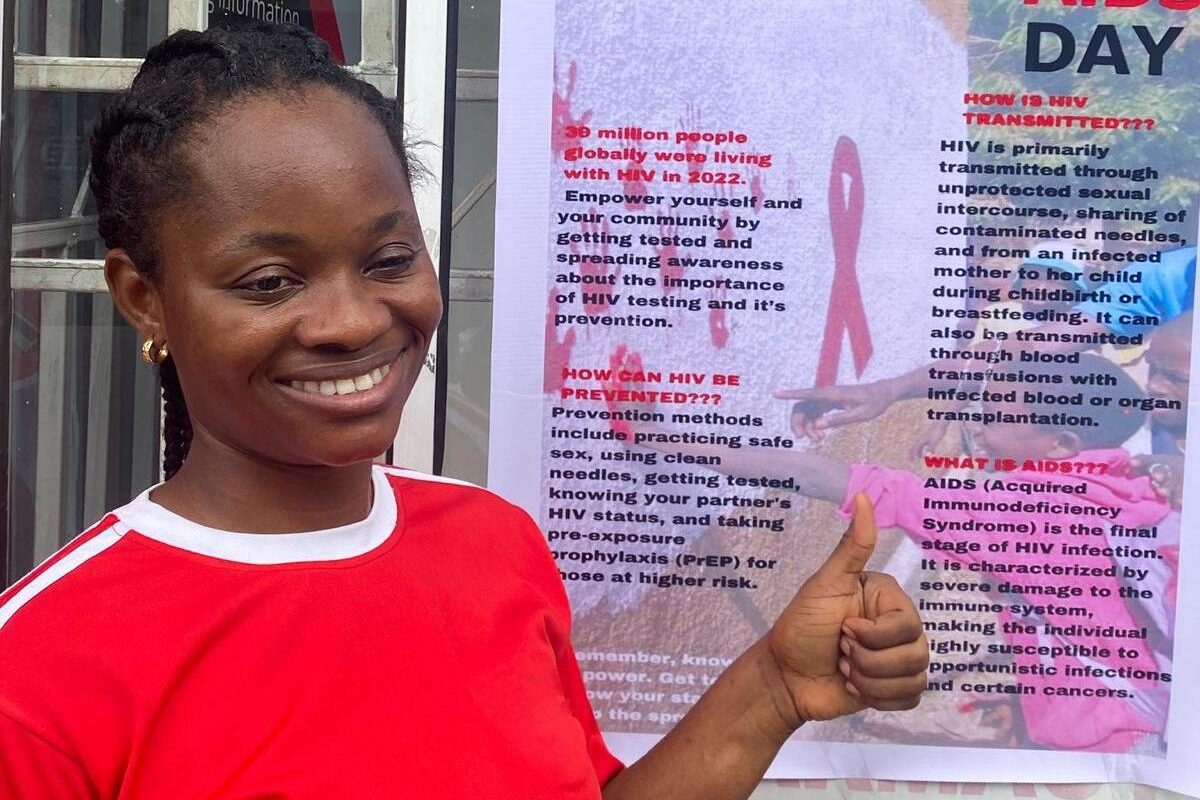 information
AIDS
DAY
39 million people
globally were living
with HIV in 2022.
Empower yourself and
your community by
getting tested and
spreading awareness
about the importance
of HIV testing and it's
prevention.
HOW CAN HIV BE
PREVENTED???
Prevention methods
include practicing safe
sex, using clean
needles, getting tested,
knowing your partner's
HIV status, and taking
pre-exposure
prophylaxis (PrEP) for
hose at higher risk.
emember, know
power. Get te
ow your sta
the spr
HOW IS HIV
TRANSMITTED???
HIV is primarily
transmitted through
unprotected sexual
intercourse, sharing of
contaminated needles,
and from an infected
mother to her child
during childbirth or
breastfeeding. It can
also be transmitted
through blood
transfusions with
infected blood or organ
transplantation.
WHAT IS AIDS???
AIDS (Acquired
Immunodeficiency
Syndrome) is the final
stage of HIV infection.
It is characterized by
severe damage to the
immune system,
making the individual
ighly susceptible to
pportunistic infections
nd certain cancers.